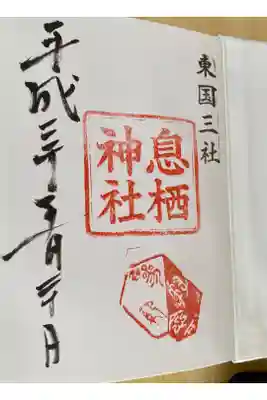 東国三社
息栖
神社
平成三十年月二十日